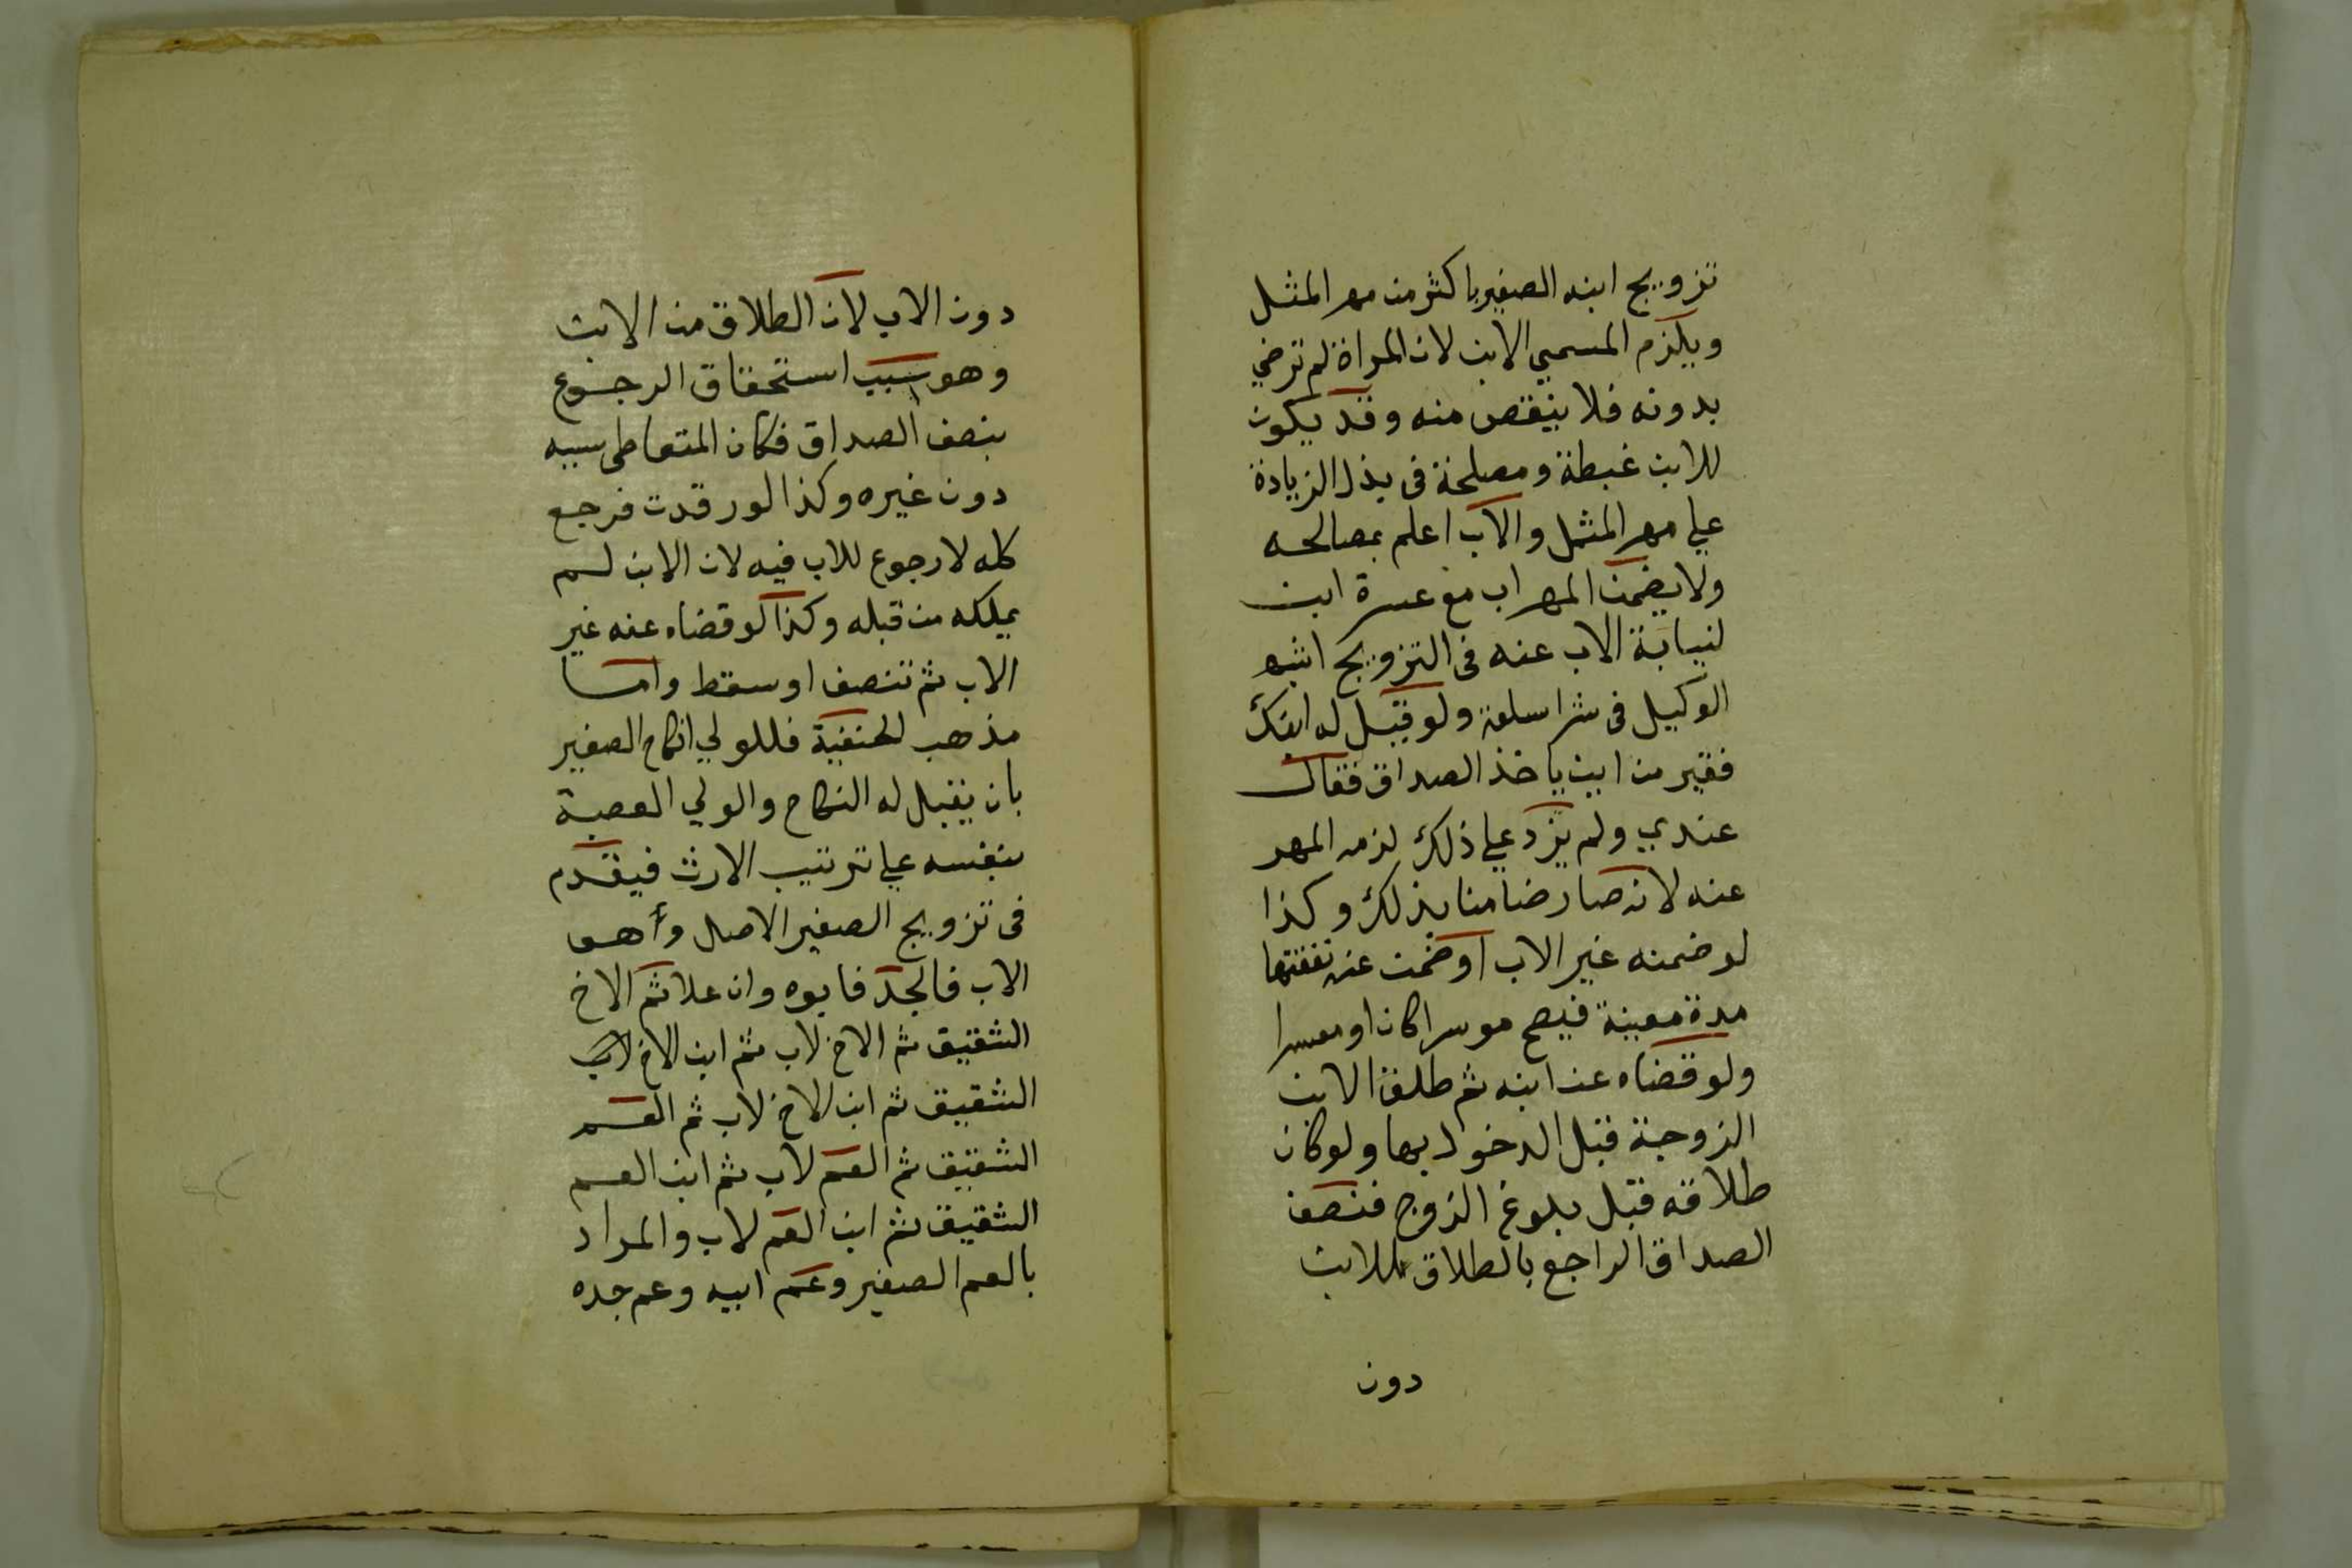 تزويج ابنه الصغير باكثر من مهر المثل
ويلزم المسمى الابن لان المراة لم ترضي
بدونه فلا ينقص منه وقد يكون
للابن غبطة ومصلحة في بذل الزيادة
علي مهر المثل والاب اعلم بمصالحه
ولا يضمن المهر اب مع عسرة ابن
لنيابة الاب عنه في التزويج اشبه
الوكيل في شرا سلعة ولو قيل له ابنك
فقير من اين ياخذ الصداق فقال
عندي ولم يزد علي ذلك لزمه المهر
عنه لانه صار ضامنا بذلك وكذا
لو ضمنه غير الاب او ضمن عنه نفقتها
مدة معينة فيصح موسرا كان او معسرا
ولو قضاه عن ابنه ثم طلق الابن
الزوجة قبل الدخول بها ولو كان
طلاقه قبل بلوغ الزوج فنصف
الصداق الراجع بالطلاق للابن
دون
دون الاب لان الطلاق من الابن
وهو سبب استحقاق الرجوع
بنصف الصداق فكان المتعاطي سببه
دون غيره وكذا لو رقدت فرجع
كله لا رجوع للاب فيه لان الابن لم
يملكه من قبله وكذا لو قضاه عنه غير
الاب ثم تنصف او سقط واما
مذهب الحنفية فللولي انكاح الصغير
بان يقبل له النكاح والولي العصبة
بنفسه علي ترتيب الارث فيقدم
في تزويج الصغير الاصل وهو
الاب فالجد فابوه وان علا ثم الاخ
الشقيق ثم الاخ لاب ثم ابن الاخ
الشقيق ثم ابن الاخ لاب ثم العم
الشقيق ثم العم لاب ثم ابن العم
الشقيق ثم ابن العم لاب والمراد
بالعم الصغير وعم ابيه وعم جده